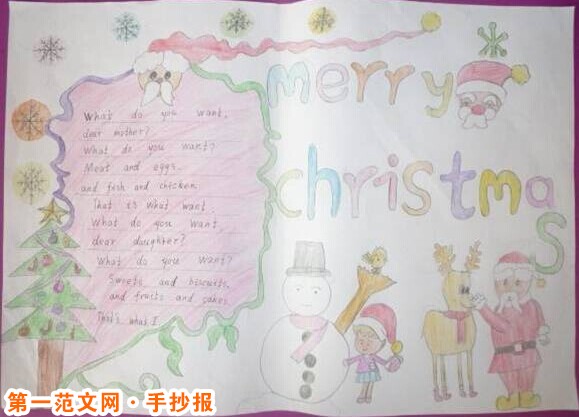 merry
christmas
What do you want,
dear mother?
What do you want?
Meat and eggs
and fish and chicken.
That is what want
What do you want
dear daughter?
What do you want?
Sweets and biscuits,
and fruits and cakes
That's what I
第一范文网·手抄报